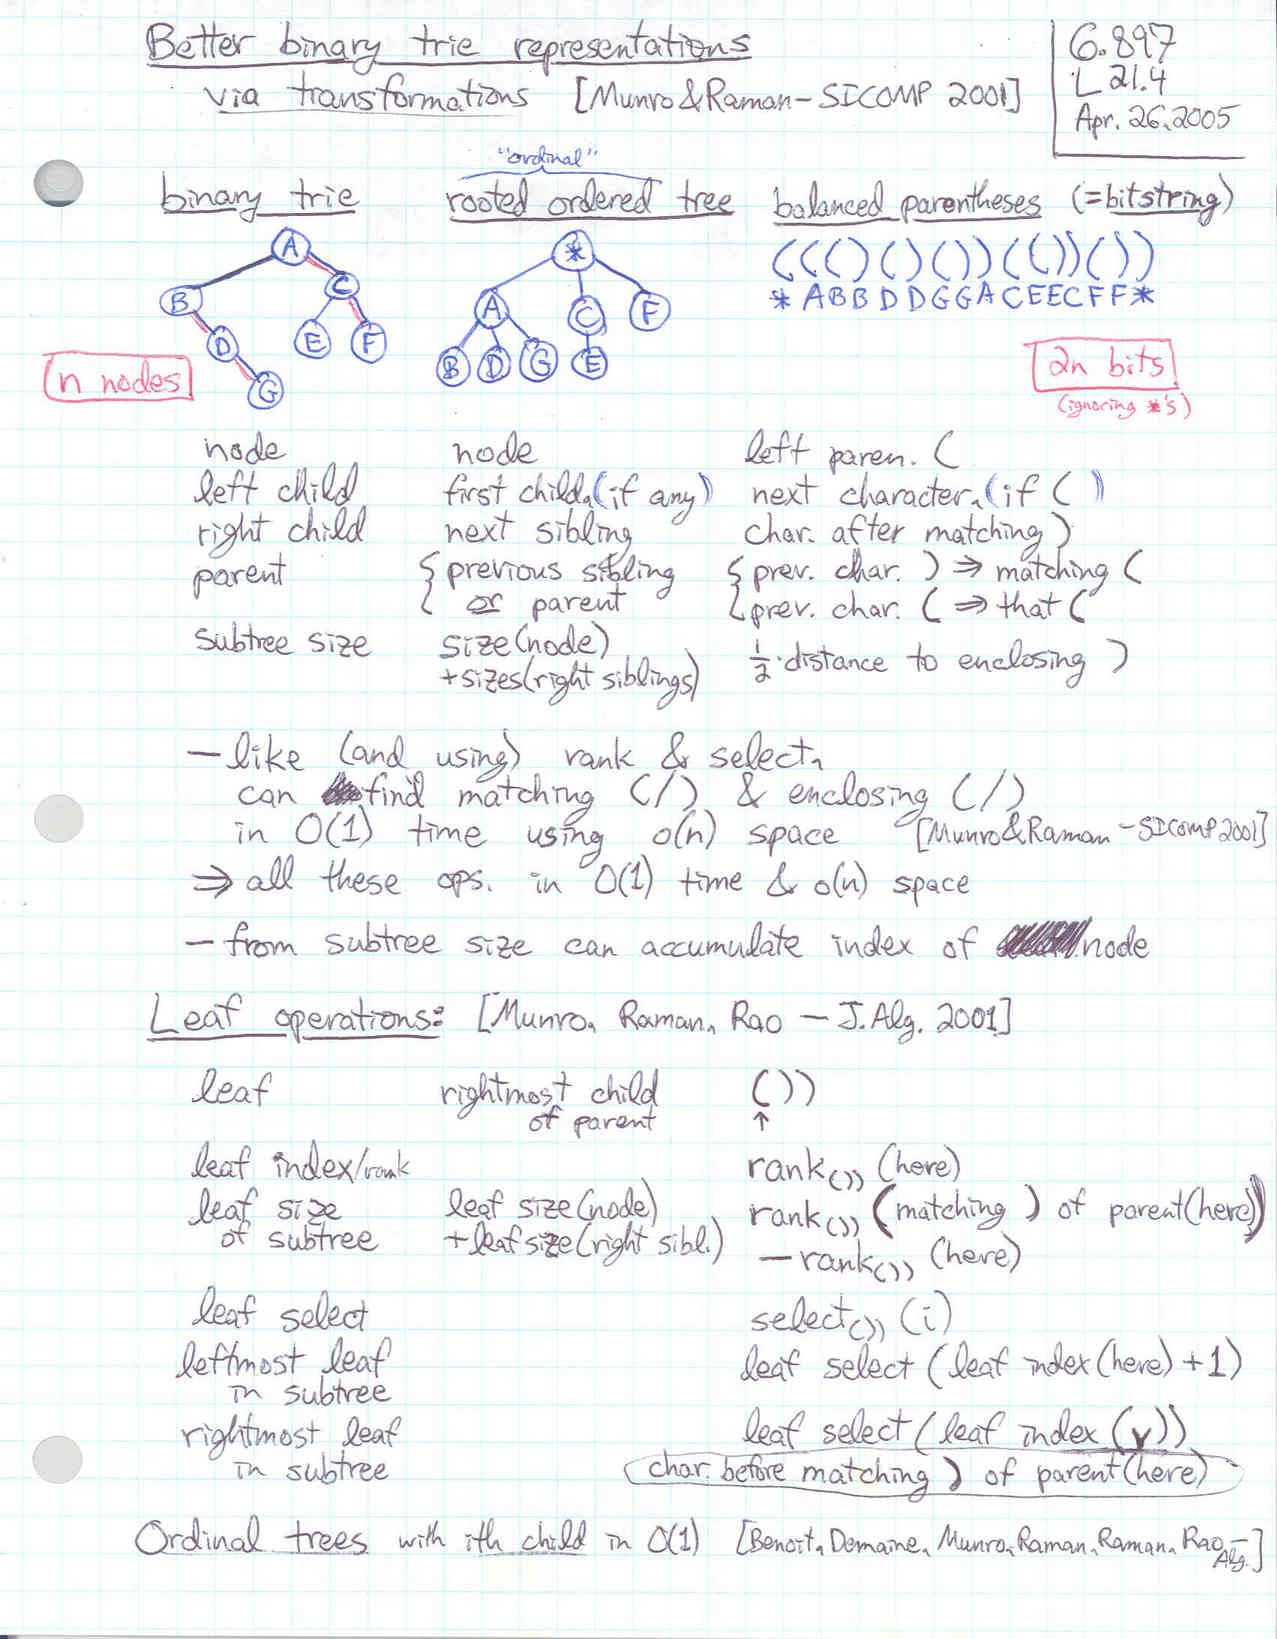 Better binary trie representations
via transformations [Munro & Raman – SICOMP 2001]
6.897
L 21.4
Apr. 26, 2005
"ordinal"
binary trie rooted ordered tree balanced parentheses (=bitstring)
A
B C
D E F
G
*
A C F
B D G E
((()()())(())())
* A B B D D G G A C E E C F F *
n nodes
2n bits
(ignoring *'s)
node node left paren. (
left child first child, (if any) next character, (if ( )
right child next sibling char. after matching )
parent { previous sibling { prev. char. ) ⇒ matching (
or parent prev. char. ( ⇒ that (
subtree size size(node) ½·distance to enclosing )
+sizes(right siblings)
– like (and using) rank & select,
can find matching (/) & enclosing (/)
in O(1) time using o(n) space [Munro & Raman – SICOMP 2001]
⇒ all these ops. in O(1) time & o(n) space
– from subtree size can accumulate index of node
Leaf operations: [Munro, Raman, Rao – J. Alg. 2001]
leaf rightmost child ())
of parent ↑
leaf index/rank rank()) (here)
leaf size leaf size(node) rank()) (matching ) of parent(here))
of subtree +leaf size(right sibl.) – rank()) (here)
leaf select select()) (i)
leftmost leaf leaf select (leaf index(here)+1)
in subtree
rightmost leaf leaf select (leaf index(v))
in subtree char. before matching ) of parent(here)
Ordinal trees with ith child in O(1) [Benoit, Demaine, Munro, Raman, Raman, Rao –
Alg.]